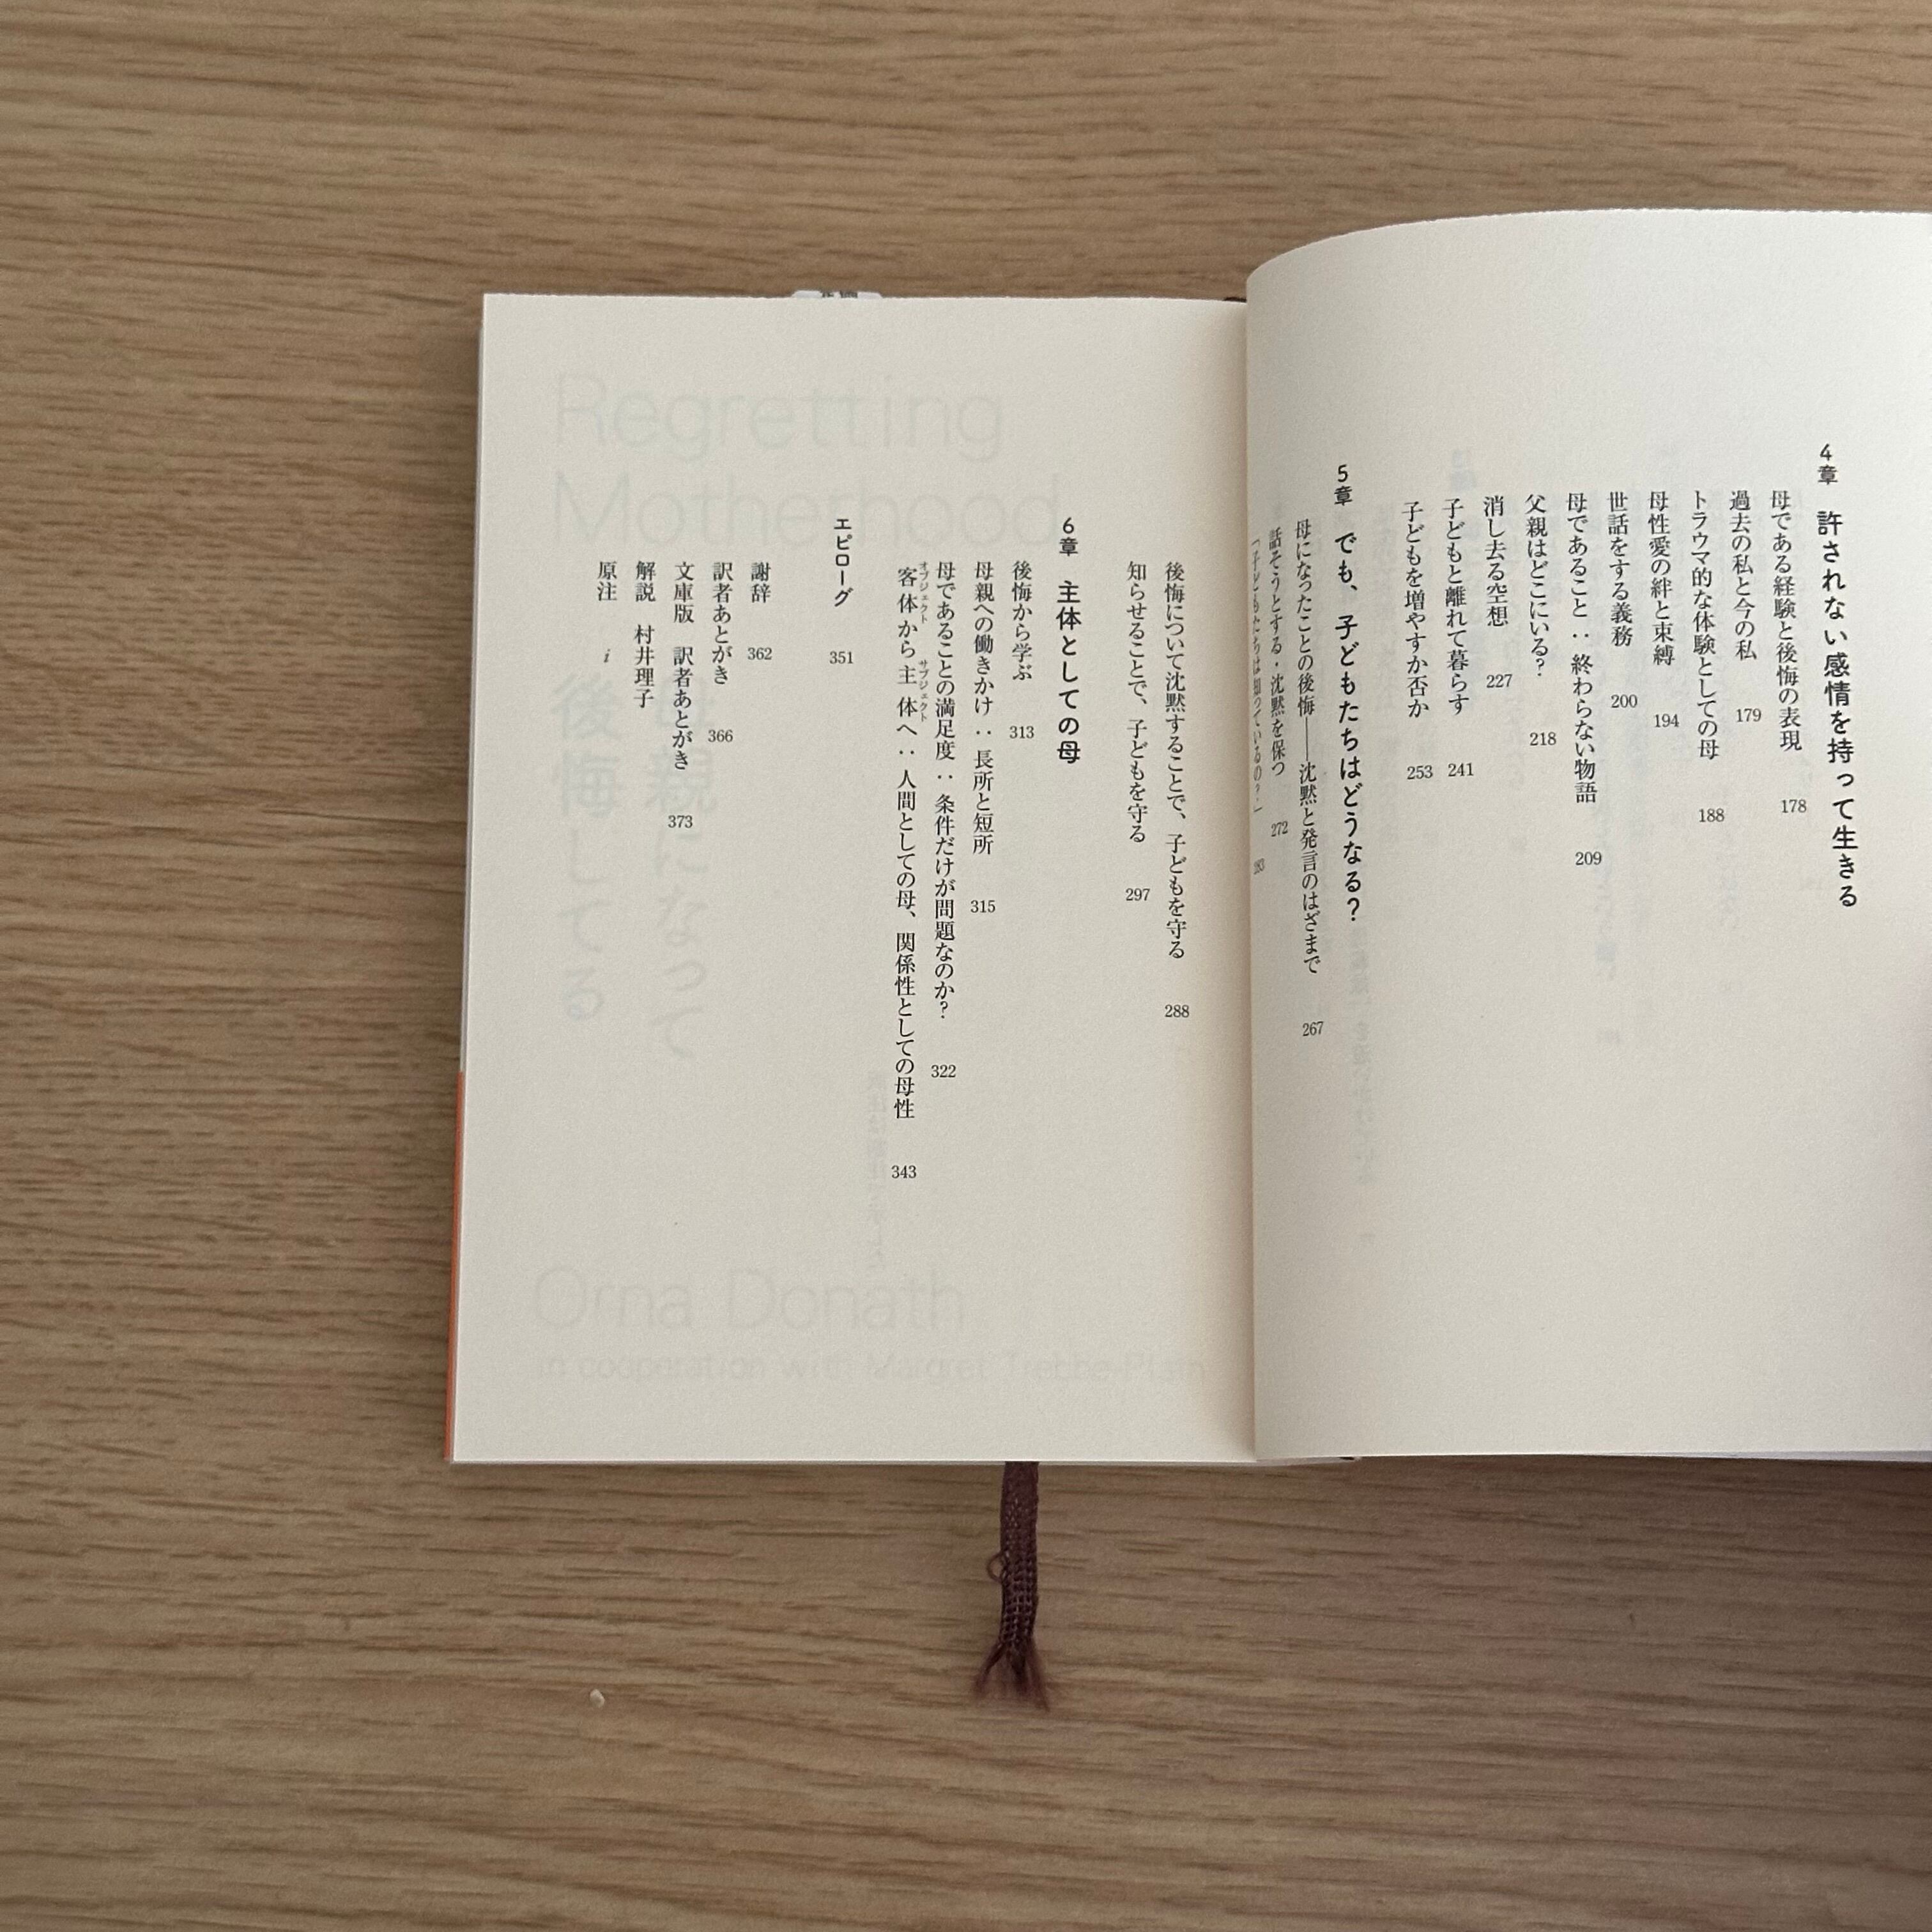 4章 許されない感情を持って生きる
母である経験と後悔の表現 178
過去の私と今の私 179
トラウマ的な体験としての母 188
母性愛の絆と束縛 194
世話をする義務 200
母であること：終わらない物語 209
父親はどこにいる？ 218
消し去る空想 227
子どもと離れて暮らす 241
子どもを増やすか否か 253
5章 でも、子どもたちはどうなる？
母になったことの後悔——沈黙と発言のはざまで 267
話そうとする・沈黙を保つ 272
「子どもたちは知っているの？」 283
後悔について沈黙することで、子どもを守る 288
知らせることで、子どもを守る 297
6章 主体としての母
後悔から学ぶ 313
母親への働きかけ：長所と短所 315
母であることの満足度：条件だけが問題なのか？ 322
オブジェクト サブジェクト
客体から主体へ：人間としての母、関係性としての母性 343
エピローグ 351
謝辞 362
訳者あとがき 366
文庫版 訳者あとがき 373
解説 村井理子
原注 i
Regretting
Motherhood
母親になって
後悔してる
Orna Donath
in cooperation with Margret Trebbe-Plath